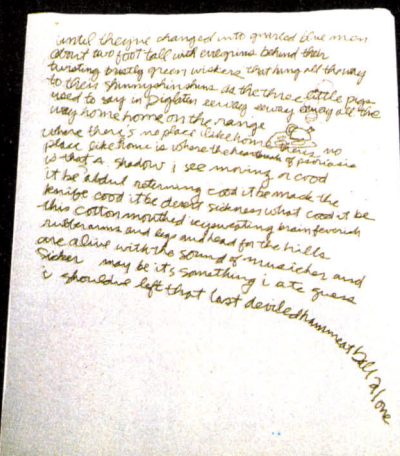 until theyve changed into gnarled blue men
about two foot tall with evilgrins behind their
twisting bristly green wiskers that hang all the way
to their shinnyshinshins as the three little pigs
used to say in Piglatin eeway eeway all the
way home home on the range
where there's no place like home theres no
place like home is where the heartbreak of psoriasis
is that a shadow i see moving or cood
it be abdul returning cood it be mack the
knife cood it be desert sickness what cood it be
this cottonmouthed icysweating brain feverish
rubberarms and legs and head for the hills
are alive with the sound of musicker and
sicker may be its something i ate guess
i shouldve left that last deviledhammeatball alone